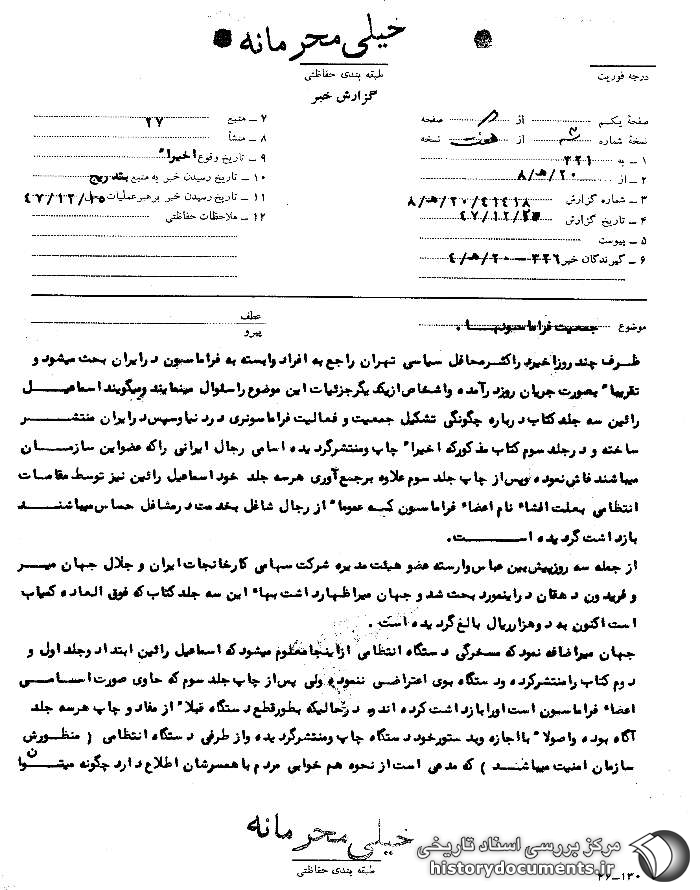 خیلی محرمانه
طبقه بندی حفاظتی
درجه فوریت
گزارش خبر
صفحهٔ یکم از صفحه
نسخهٔ شماره از نسخه
۱ – به ۳۲۱
۲ – از ۲۰/ﻫ/۸
۳ – شماره گزارش ۸/ﻫ/۲۰/۴۱۴۱۸
۴ – تاریخ گزارش ۴۷/۱۲/
۵ – پیوست
۶ – گیرندگان خبر ۳۲۶ – ۲۰/ﻫ/۴
۷ – منبع ۲۷
۸ – منشأ
۹ – تاریخ وقوع اخیراً
۱۰ – تاریخ رسیدن خبر به منبع بتدریج
۱۱ – تاریخ رسیدن خبر برهبر عملیات محل ۴۷/۱۲/۱۵
۱۲ – ملاحظات حفاظتی
موضوع جمعیت فراماسونها .
عطف
پیرو
ظرف چند روز اخیر در اکثر محافل سیاسی تهران راجع به افراد وابسته به فراماسون در ایران بحث میشود و
تقریباً بصورت جریان روز در آمده و اشخاص از یکدیگر جزئیات این موضوع را سئوال مینمایند ومیگویند اسماعیل
رائین سه جلد کتاب درباره چگونگی تشکیل جمعیت و فعالیت فراماسونری در دنیا وسپس در ایران منتشر
ساخته و در جلد سوم کتاب مذکور که اخیراً چاپ ومنتشر گردیده اسامی رجال ایرانی را که عضو این سازمان
میباشند فاش نموده وپس از چاپ جلد سوم علاوه بر جمع آوری هر سه جلد خود اسماعیل رائین نیز توسط مقامات
انتظامی بعلت افشاء نام اعضاء فراماسون که عموماً از رجال شاغل بخدمت در مشاغل حساس میباشند
بازداشت گردیده است.
از جمله سه روز پیش بین عباس وارسته عضو هیئت مدیره شرکت سهامی کارخانجات ایران و جلال جهان میر
و فریدون دهقان در اینمورد بحث شد و جهان میر اظهار داشت بهاء این سه جلد کتاب که فوق العاده کمیاب
است اکنون به دو هزار ریال بالغ گردیده است .
جهان میر اضافه نمود که مسخرگی دستگاه انتظامی از اینجا معلوم میشود که اسماعیل رائین ابتدا دو جلد اول و
دوم کتاب را منتشر کرده و دستگاه بوی اعتراضی ننموده ولی پس از چاپ جلد سوم که حاوی صورت اسامی
اعضاء فراماسون است او را بازداشت کرده اند و در حالیکه بطور قطع دستگاه قبلاً از مفاد و چاپ هر سه جلد
آگاه بوده و اصولاً با اجازه وبدستور خود دستگاه چاپ ومنتشر گردیده و از طرفی دستگاه انتظامی ( منظورش
سازمان امنیت میباشد ) که مدعی است از نحوه هم خوابی مردم با همسرشان اطلاع دارد چگونه میتوان
خیلی محرمانه
طبقه بندی حفاظتی
۲۶–۱۳۰
مرکز بررسی اسناد تاریخی
historydocuments.ir